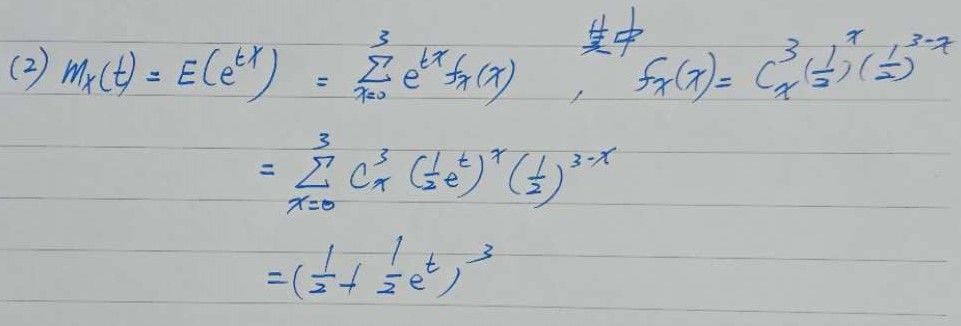 (2) m_X(t) = E(e^{tX}) = \sum_{x=0}^{3} e^{tx} f_X(x) , 其中 f_X(x) = C_x^3 (\frac{1}{2})^x (\frac{1}{2})^{3-x}
= \sum_{x=0}^{3} C_x^3 (\frac{1}{2}e^t)^x (\frac{1}{2})^{3-x}
= (\frac{1}{2} + \frac{1}{2}e^t)^3